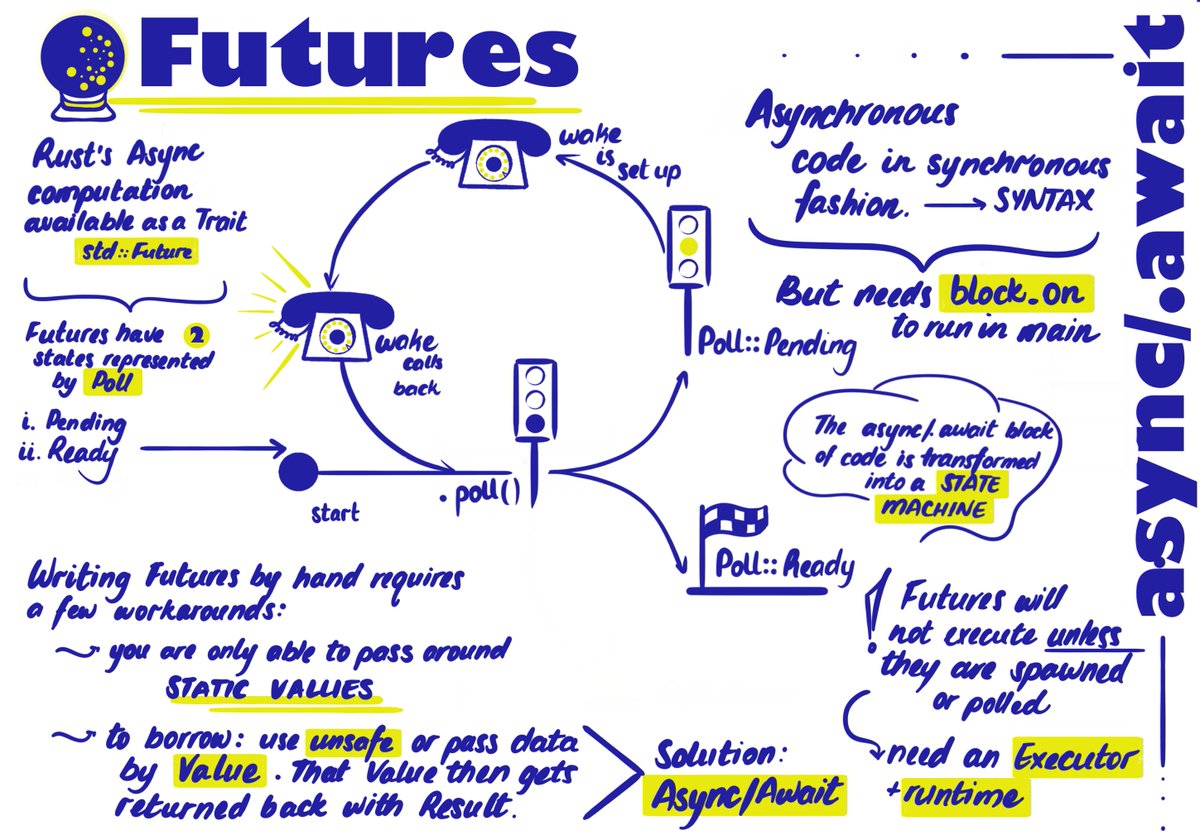 Futures
Rust's Async
computation
available as a Trait
std::Future
Futures have 2
states represented
by Poll
i. Pending
ii. Ready
start
.poll()
wake
calls
back
wake
is
set up
Poll::Pending
Poll::Ready
Writing Futures by hand requires
a few workarounds:
you are only able to pass around
STATIC VALUES
to borrow: use unsafe or pass data
by Value. That Value then gets
returned back with Result.
Solution:
Async/Await
async/.await
Asynchronous
code in synchronous
fashion. → SYNTAX
But needs block_on
to run in main
The async/.await block
of code is transformed
into a STATE
MACHINE
! Futures will
not execute unless
they are spawned
or polled
need an Executor
+ runtime